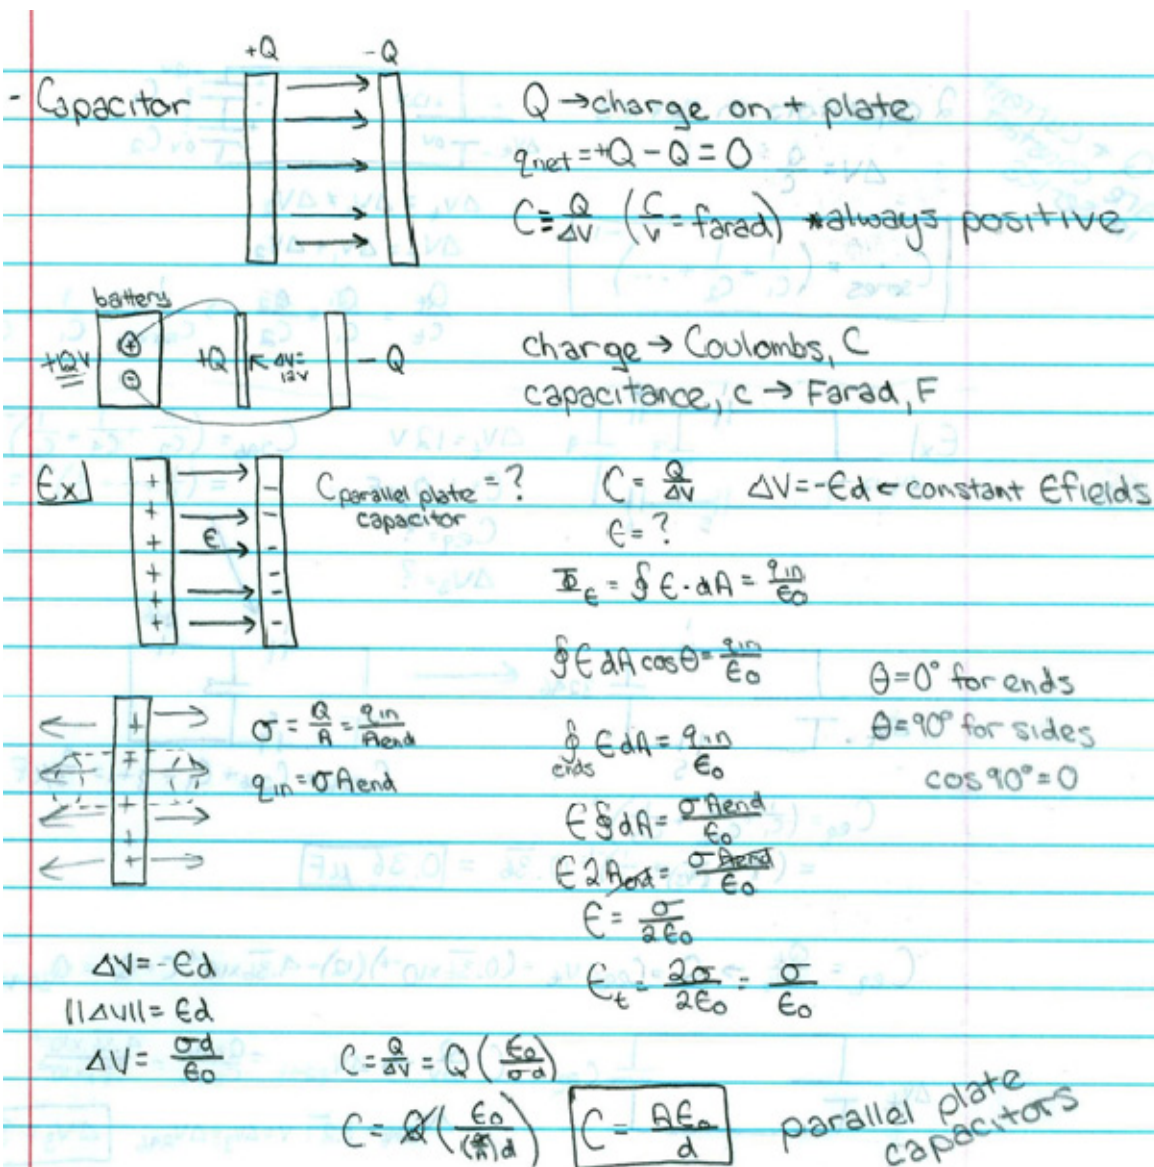 +Q -Q
- Capacitor
Q → charge on + plate
qnet = +Q - Q = 0
C ≡ Q/ΔV (C/V = farad) *always positive
battery
+12V + - +Q ΔV= 12V - Q
charge → Coulombs, C
capacitance, c → Farad, F
Ex] + + + + + + E - - - - - -
Cparallel plate capacitor = ?
C = Q/ΔV ΔV = -Ed ← constant E fields
E = ?
Φ_E = ∮ E · dA = qin/ε0
∮ E dA cosθ = qin/ε0
θ = 0° for ends
θ = 90° for sides
cos 90° = 0
+ + + + +
σ = Q/A = qin/Aend
qin = σAend
∮ends E dA = qin/ε0
E ∮ dA = σAend/ε0
E 2Aend = σAend/ε0
E = σ/2ε0
Et = 2σ/2ε0 = σ/ε0
ΔV = -Ed
||ΔV|| = Ed
ΔV = σd/ε0
C = Q/ΔV = Q (ε0/σd)
C = Q (ε0/(Q/A)d)
C = Aε0/d
parallel plate
capacitors